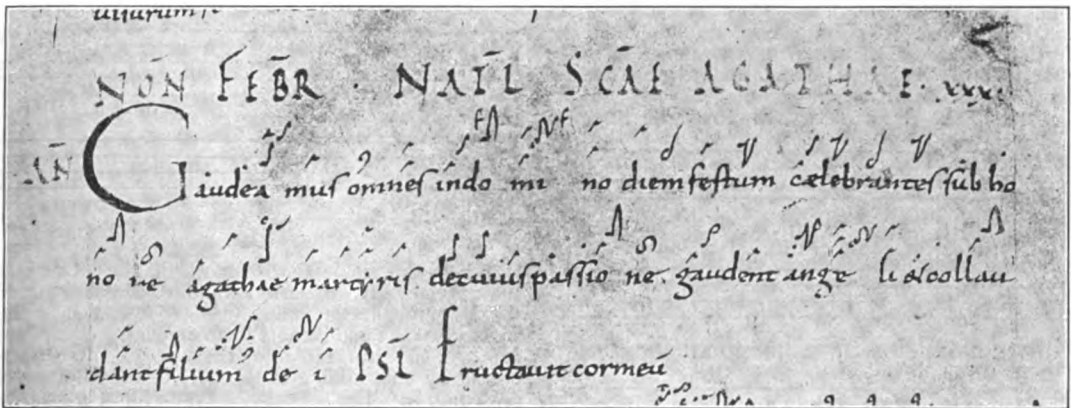 NOÑ FEBR̄ · NATL̄ SCĀE AGATHAE · xxx ·
AN̄ Gaudea mus omnes indo mi no diem festum cęlebrantes sub ho
no re agathae martyris de cuius passio ne gaudent ange li & collau
dant filium de i PSL̄ Eructauit cor meū